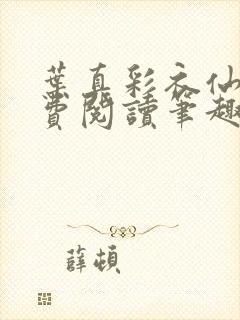 葉真彩衣仙
費閱讀筆趣
薛頓